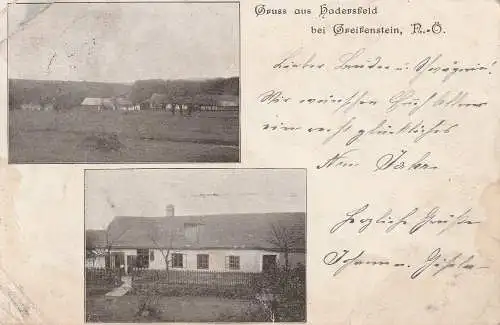 Gruss aus Hadersfeld
bei Greifenstein, N.-Ö.
Lieber Bruder u. Schwägerin!
Wir wünschen Euch allen
ein recht glückliches
Neu Jahr.
Herzliche Grüße
Johann u.